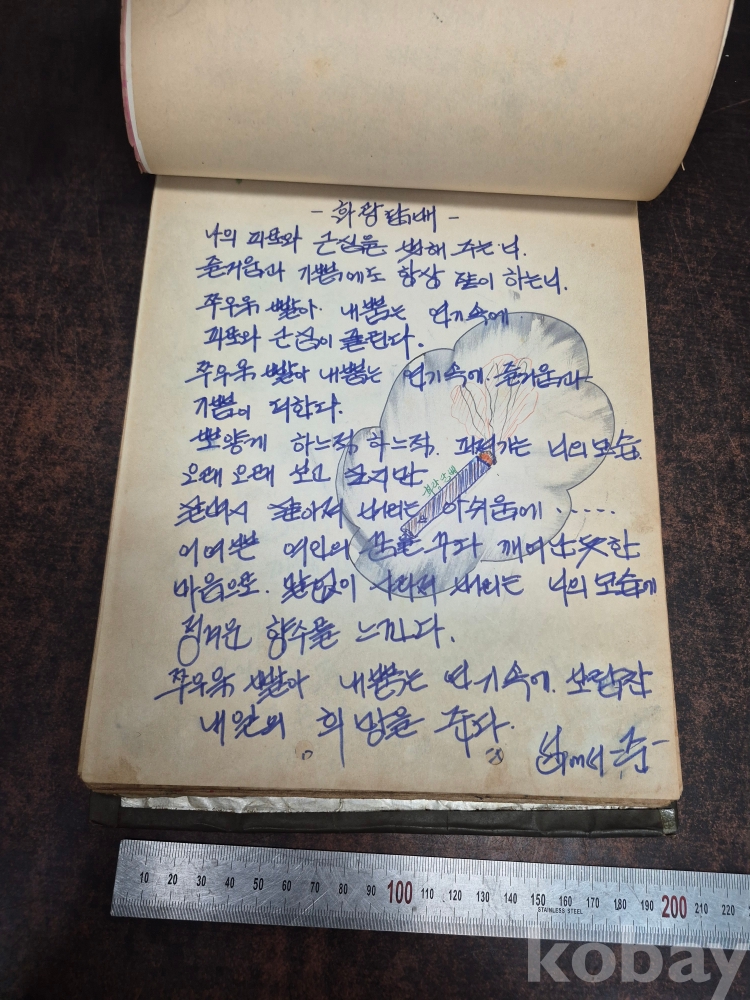 - 화랑담배 -
나의 피로와 근심을 변해 주는 너.
즐거움과 기쁨에도 항상 같이 하는너.
쭈우욱 빨아 내뿜는 연기속에
피로와 근심이 풀린다.
쭈우욱 빨아 내뿜는 연기속에 즐거움과
기쁨이 더한다.
뽀얗게 하느적 하느적. 퍼져가는 너의모습.
오래 오래 보고 싶지만
살며시 사라져 버리는 아쉬움에 ......
어여쁜 여인의 꿈을 꾸다 깨어난듯한
마음으로. 말없이 사라져 버리는 너의 모습에
정겨운 향수를 느낀다.
쭈우욱 빨아 내뿜는 연기속에. 보람찬
내일의 희망을 준다.
화랑담배
10 20 30 40 50 60 70 80 90 100 110 120 130 140 150 160 170 180 190 200 210 220
STAINLESS STEEL
kobay